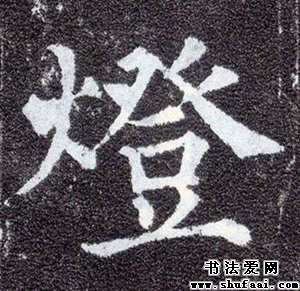 燈
书法爱网
www.shufaai.com